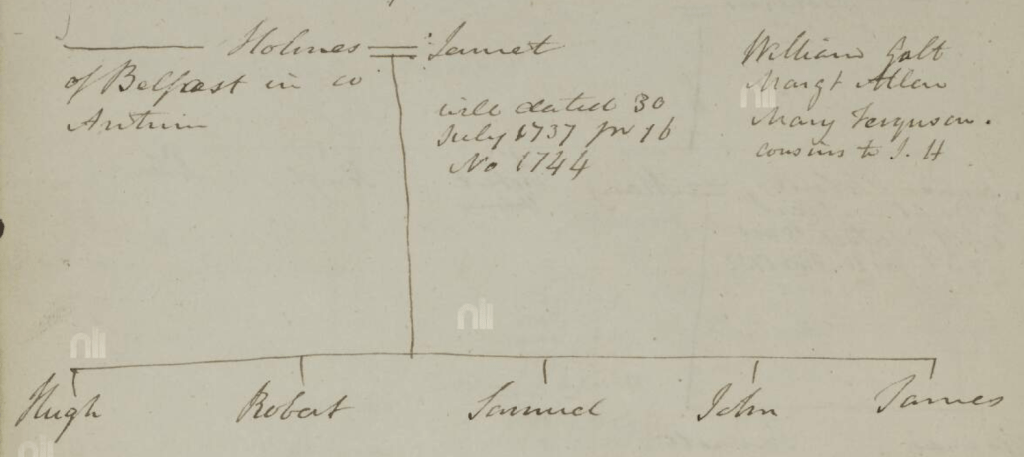 Holmes = Jannet
of Belfast in co
Antrim
will dated 30
July 1737 pr 16
No 1744
William Galt
Margt Allen
Mary Ferguson.
cousins to J. H
Hugh Robert Samuel John James